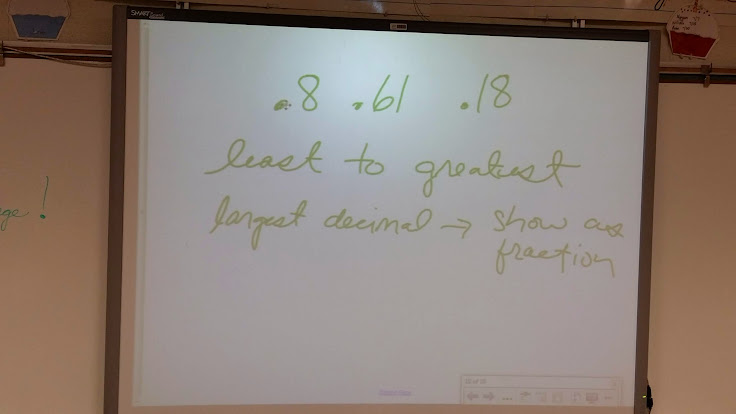 SMART Board
.8 .61 .18
least to greatest
largest decimal → show as
fraction
ge!